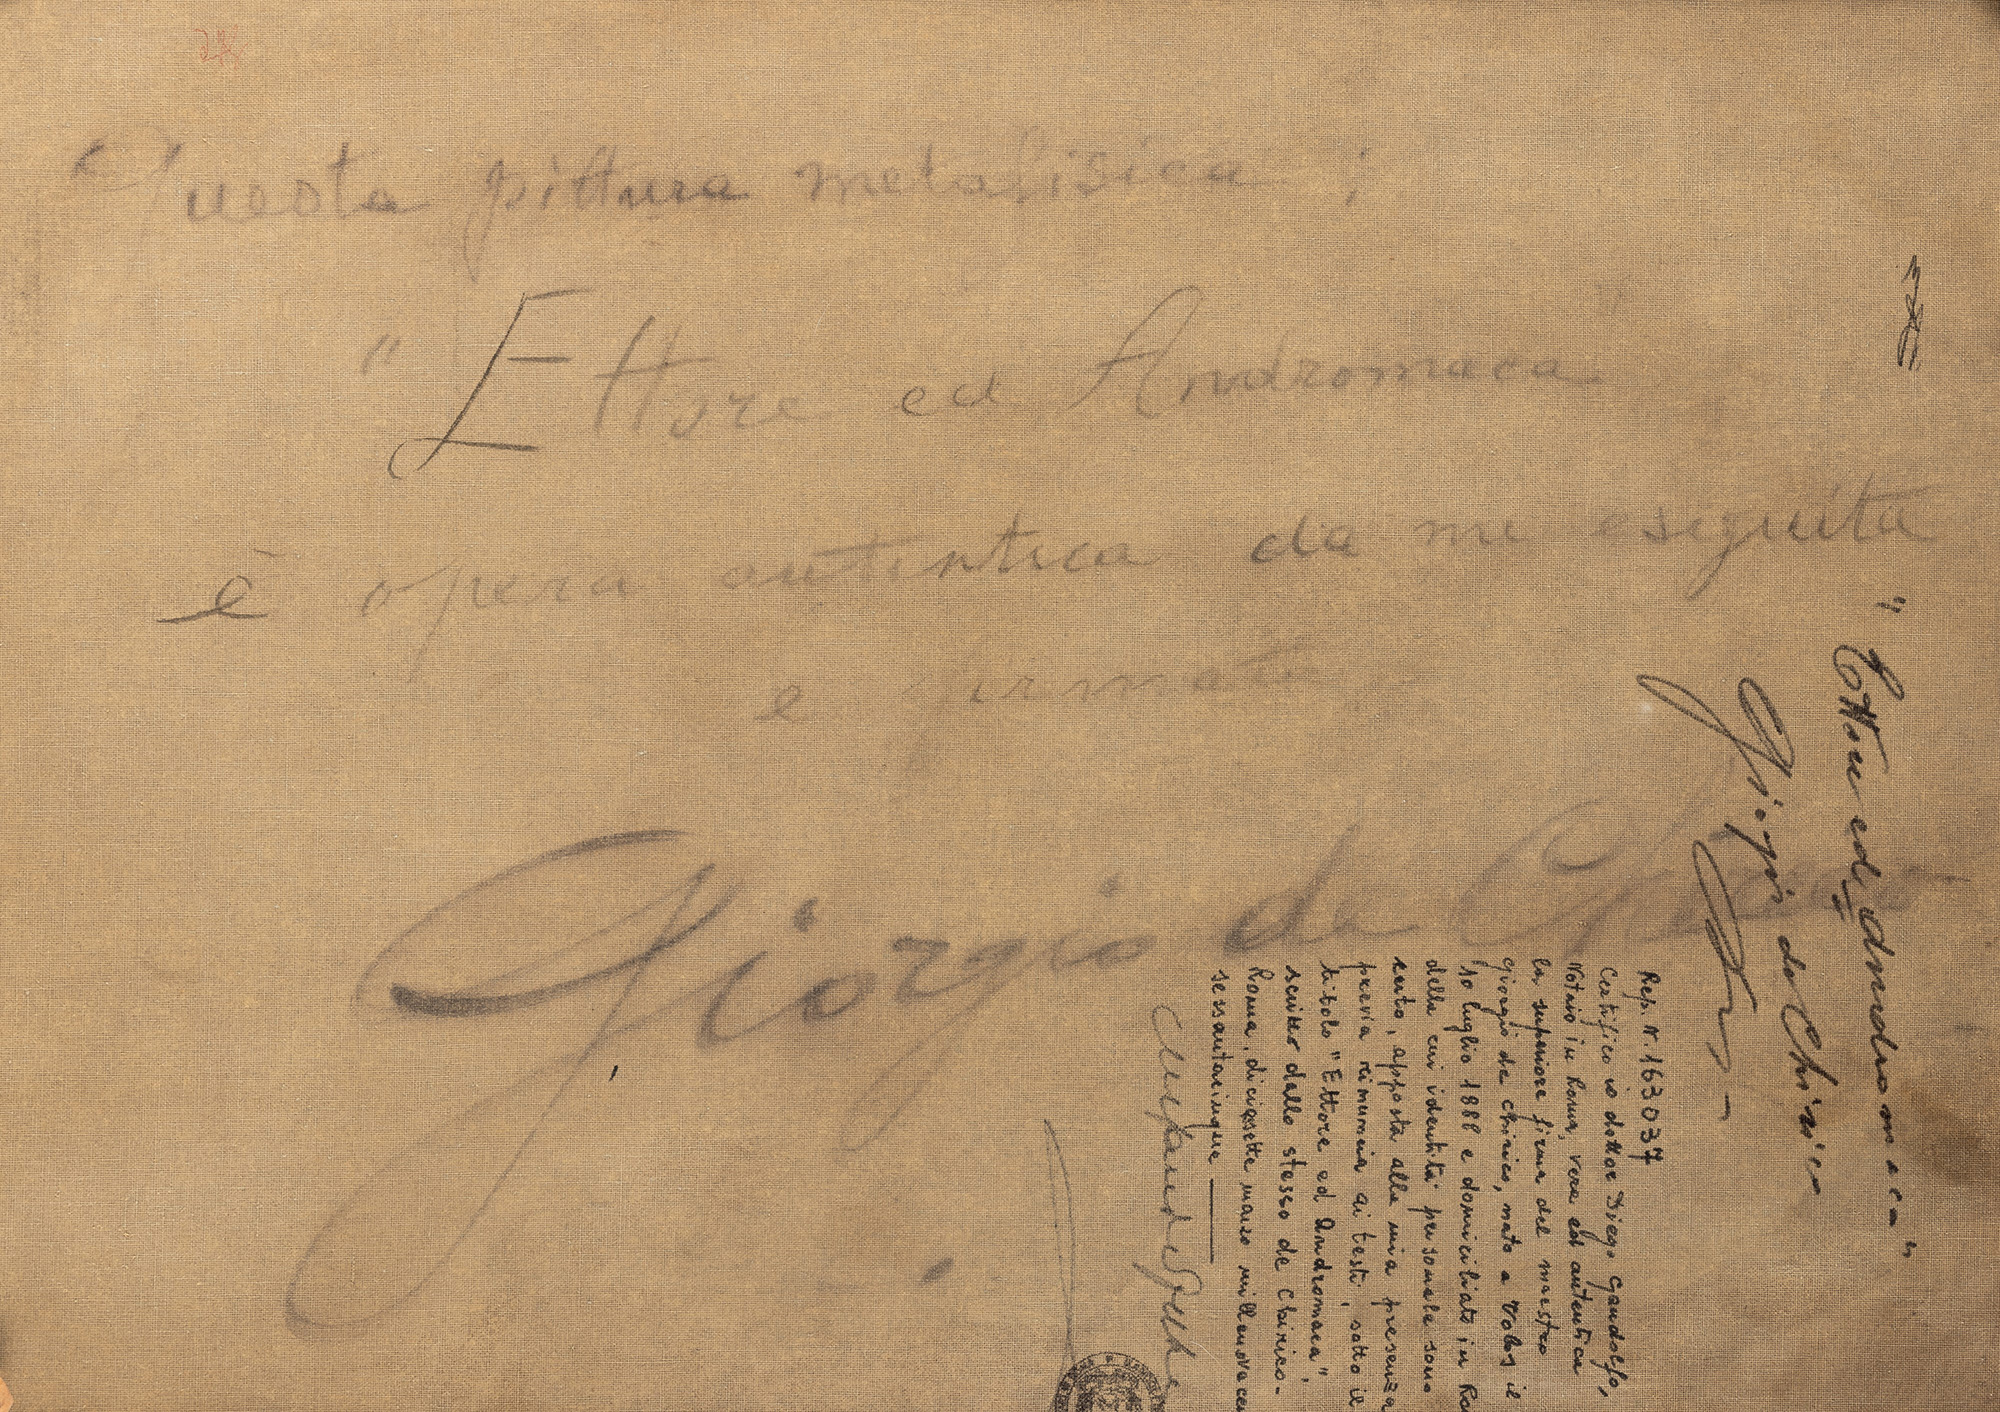 Questa pittura metafisica:
"Ettore ed Andromaca
è opera autentica da me eseguita
e firmata
Giorgio de Chirico
"Ettore ed Andromaca"
Giorgio de Chirico
Rep. N. 163037
Certifico io dottor Diego Gandolfo,
Notaio in Roma, vera ed autentica
la superiore firma del maestro
Giorgio de Chirico, nato a Volos il
10 luglio 1888 e domiciliato in
della cui identità personale sono
certo, apposta alla mia presenza
previa rinuncia ai testi, sotto il
titolo "Ettore ed Andromaca",
scritto dallo stesso de Chirico.-
Roma, diciassette marzo
sessantacinque